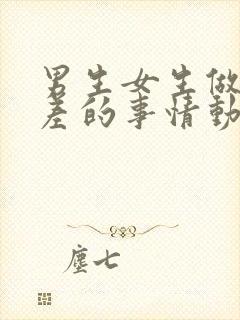 男生女生做
差的事情動
塵七